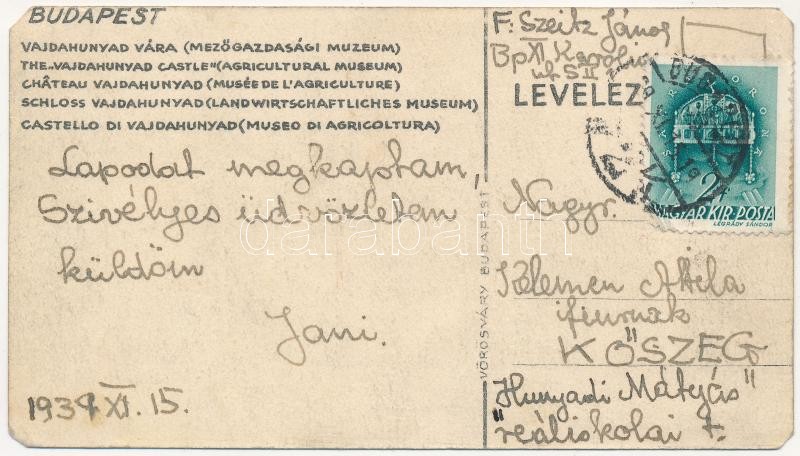 BUDAPEST
VAJDAHUNYAD VÁRA (MEZŐGAZDASÁGI MUZEUM)
THE „VAJDAHUNYAD CASTLE" (AGRICULTURAL MUSEUM)
CHÂTEAU VAJDAHUNYAD (MUSÉE DE L'AGRICULTURE)
SCHLOSS VAJDAHUNYAD (LANDWIRTSCHAFTLICHES MUSEUM)
CASTELLO DI VAJDAHUNYAD (MUSEO DI AGRICOLTURA)
Lapodat megkaptam,
Szivélyes üdvözletem
küldöm
Jani.
XI. 15.
VÖRÖSVÁRY BUDAPEST
F: Szeitz János
Bp XI Karolina
út
LEVELEZ
MAGYAR KIR. POSTA
LÉGRÁDY SÁNDOR
2f
Nagyr.
Kelemen Attila
fiurnak
KŐSZEG
„Hunyadi Mátyás"
reáliskolai
darabanth